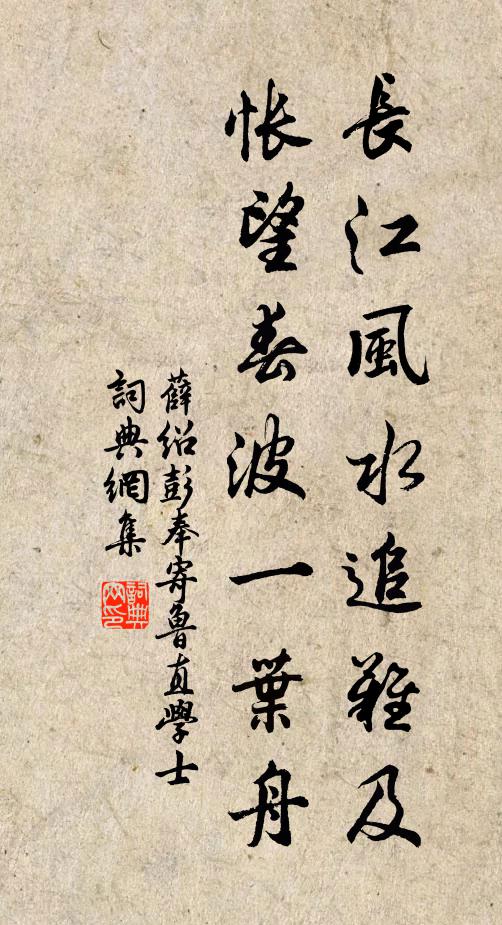 長江風水追難及
悵望春波一葉舟
薛紹彭奉寄魯直學士
詞典網集
詞典網印